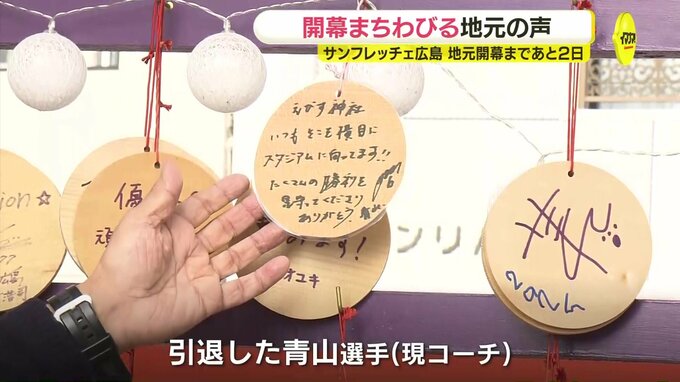 開幕まちわびる地元の声
サンフレッチェ広島 地元開幕まであと2日
イマなま
えびす神社
いつもそこを横目に
スタジアムに向ってます!!
たくさんの勝利を
見守ってくださり
ありがとう。
優
頑
ます!
オユキ
ion☆
広島
浩司
ンリ
2024
引退した青山選手(現コーチ)